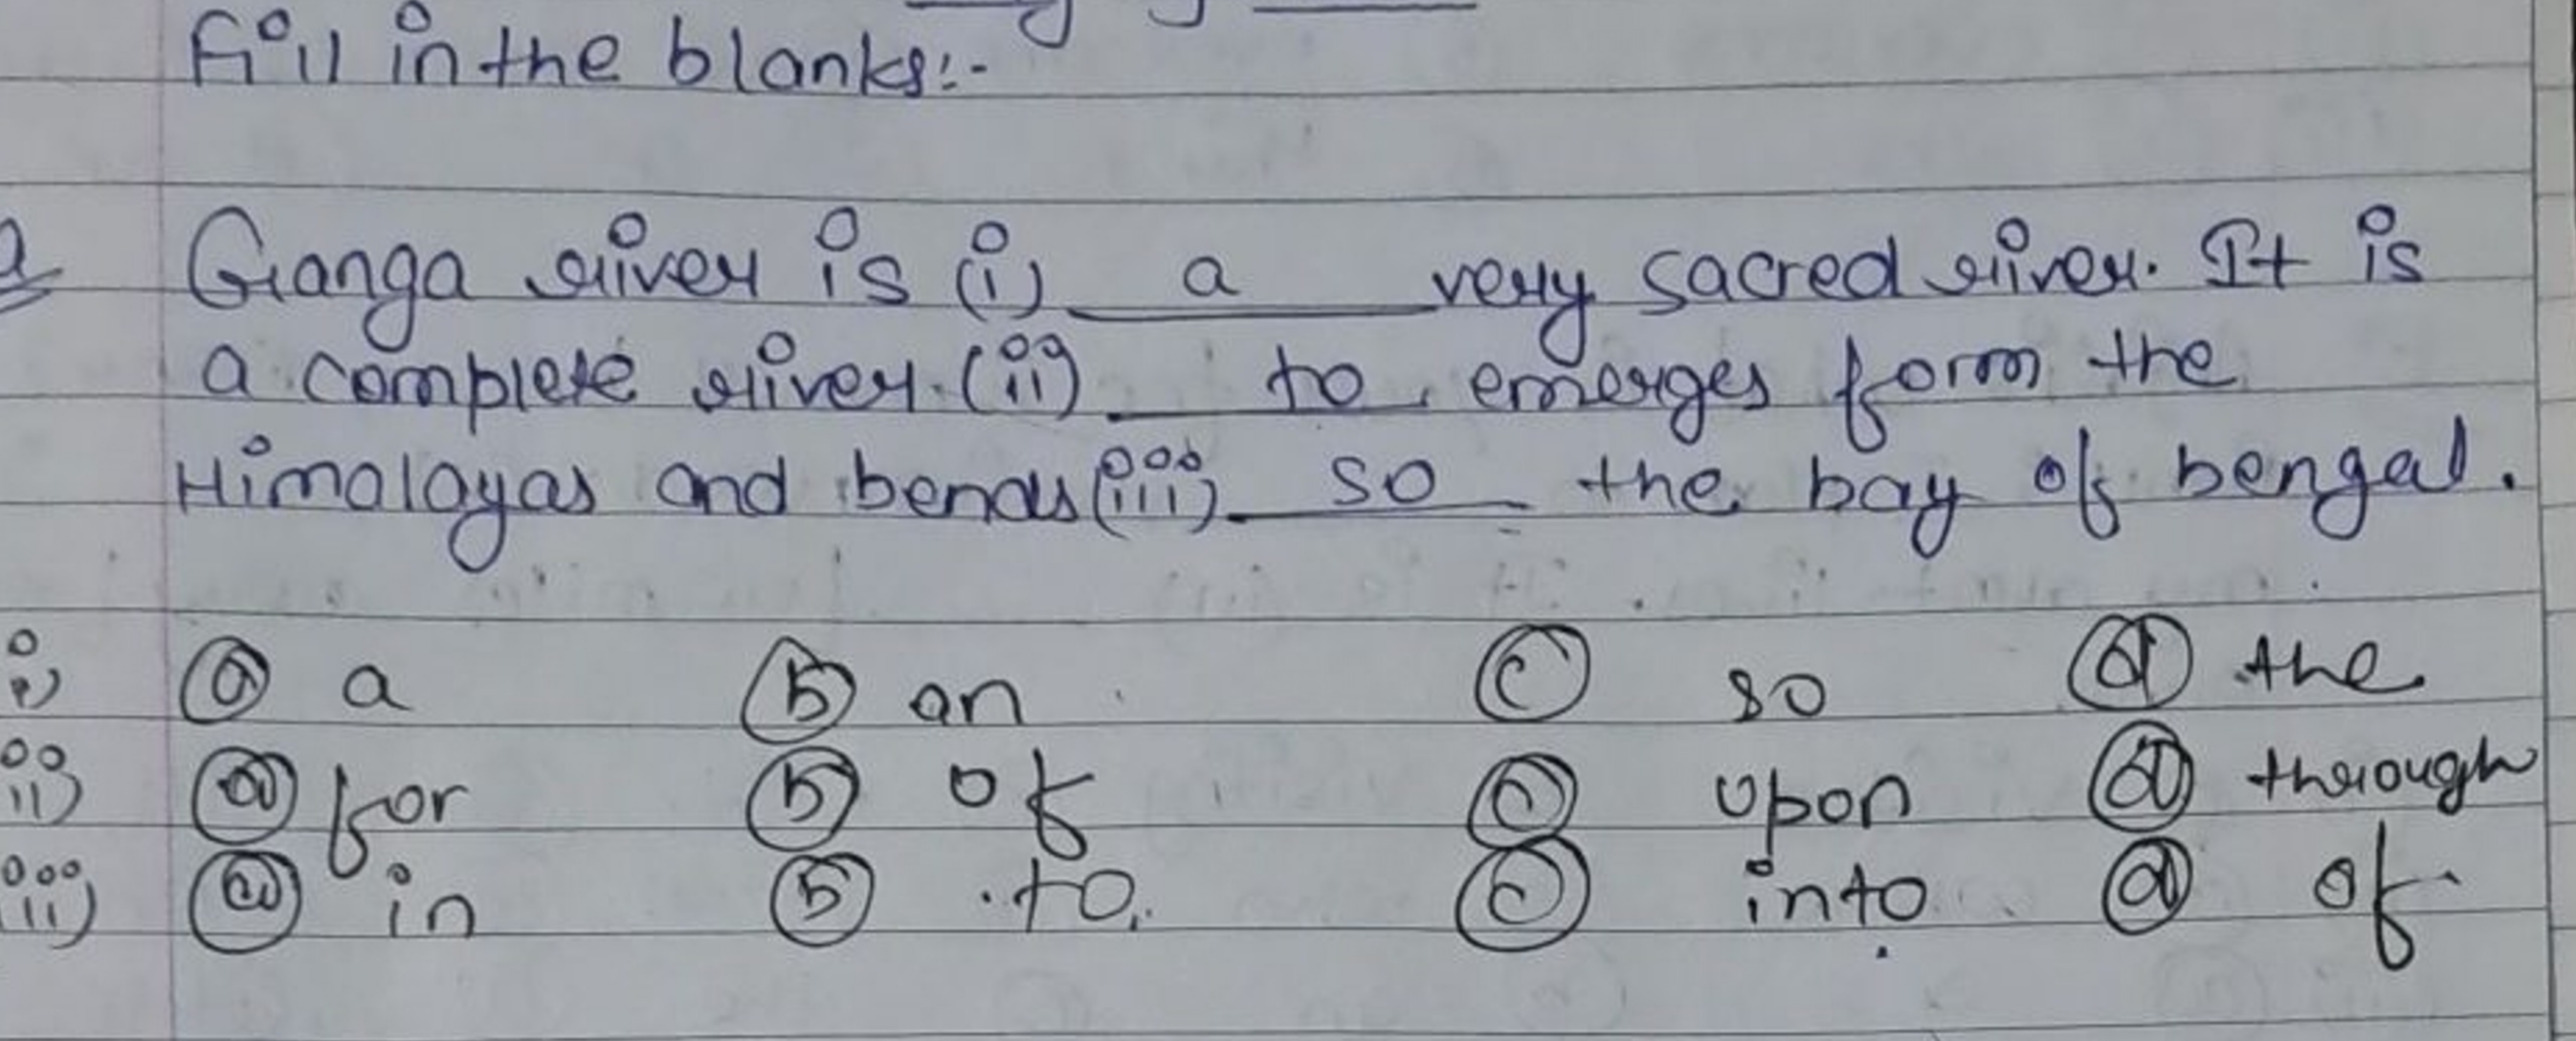 Fill in the blanks:-
Ganga river is (i) a very sacred river. It is
a complete river. (ii) to emerges form the
Himalayas and bends (iii) so the bay of bengal.
i) (a) a (b) an (c) so (d) the
ii) (a) for (b) of (c) upon (d) through
iii) (a) in (b) to (c) into (d) of